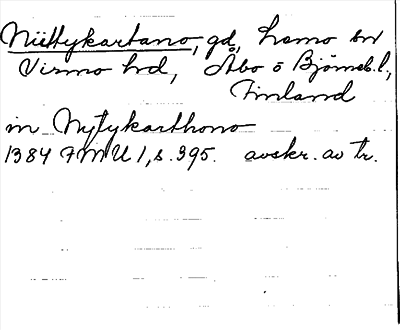 Niittykartano, gd, Lemo sn
Virmo hd, Åbo o Björneb.l.,
Finland
in Nytykarthono
1384 FMU 1, s. 395. avskr. av tr.